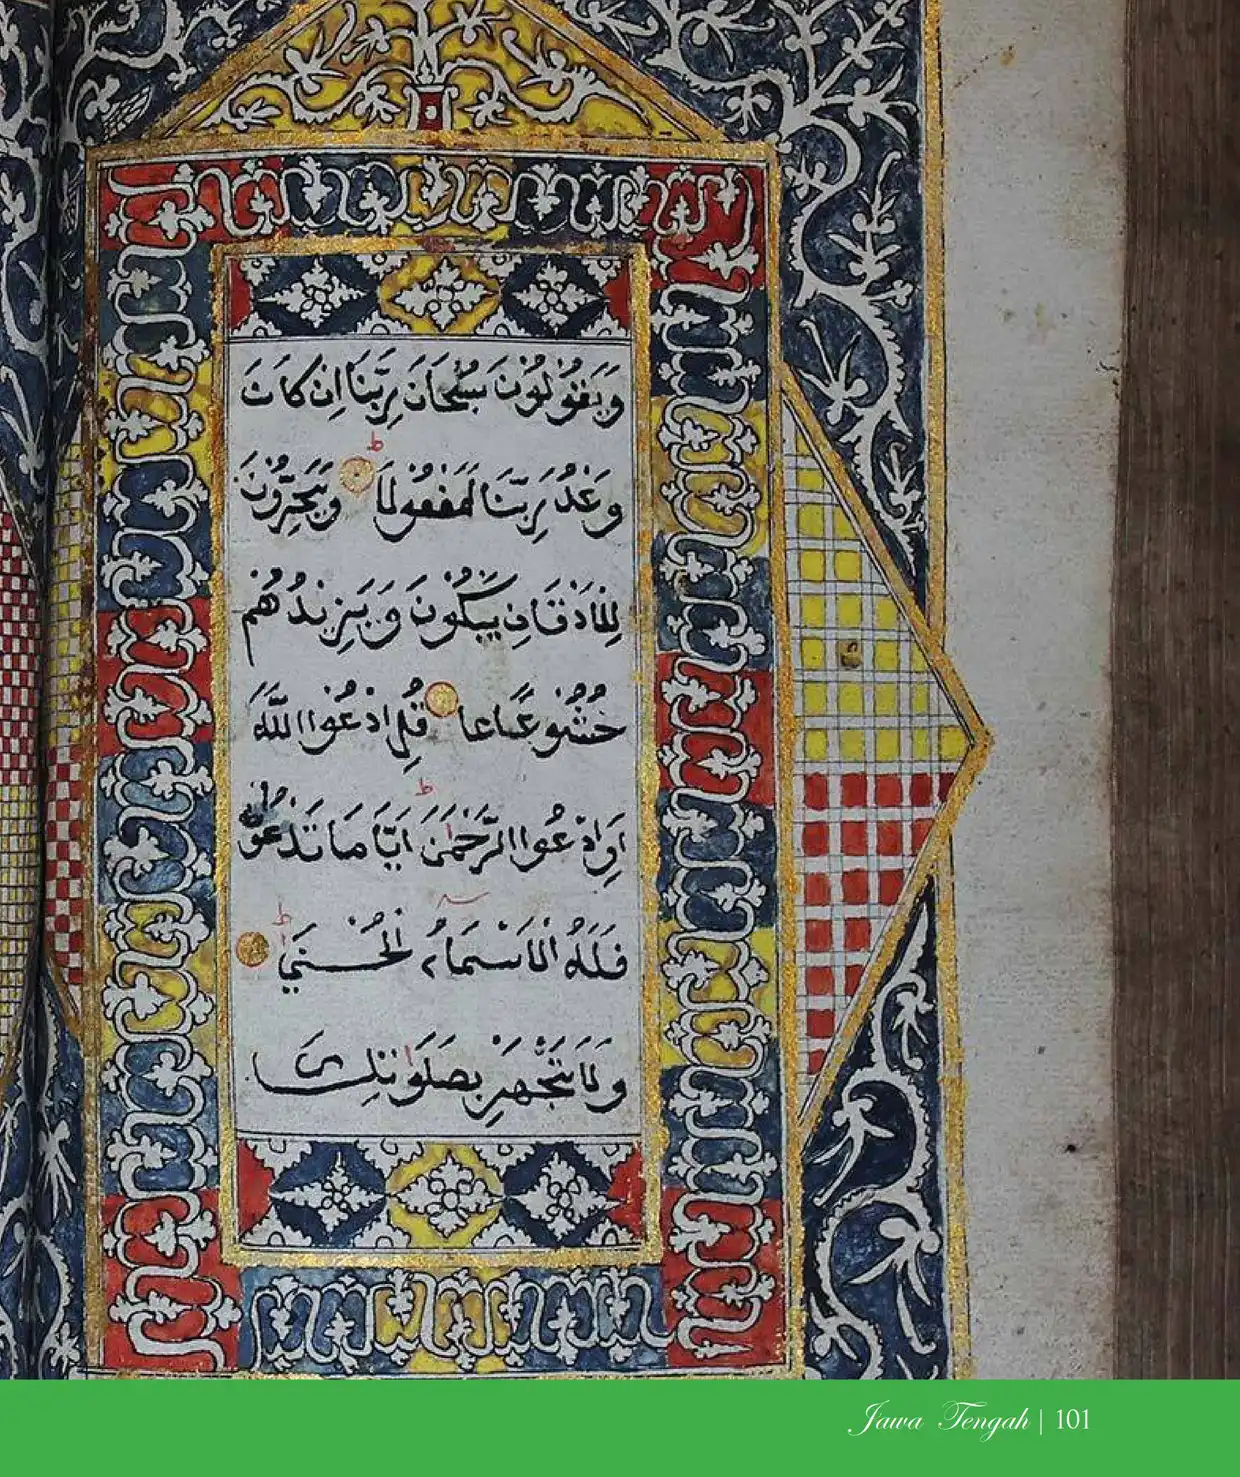 وَيَقُولُونَ سُبْحَانَ رَبِّنَا اِنْ كَانَ
وَعْدُ رَبِّنَا لَمَفْعُولًا وَيَخِرُّونَ
لِلْاَذْقَانِ يَبْكُونَ وَيَزِيْدُهُمْ
خُشُوعًا قُلِ ادْعُوا اللّٰهَ
اَوِادْعُوا الرَّحْمٰنَ اَيًّا مَا تَدْعُوْا
فَلَهُ الْاَسْمَاءُ الْحُسْنٰى
وَلَا تَجْهَرْ بِصَلَوٰتِكَ
Jawa Tengah | 101